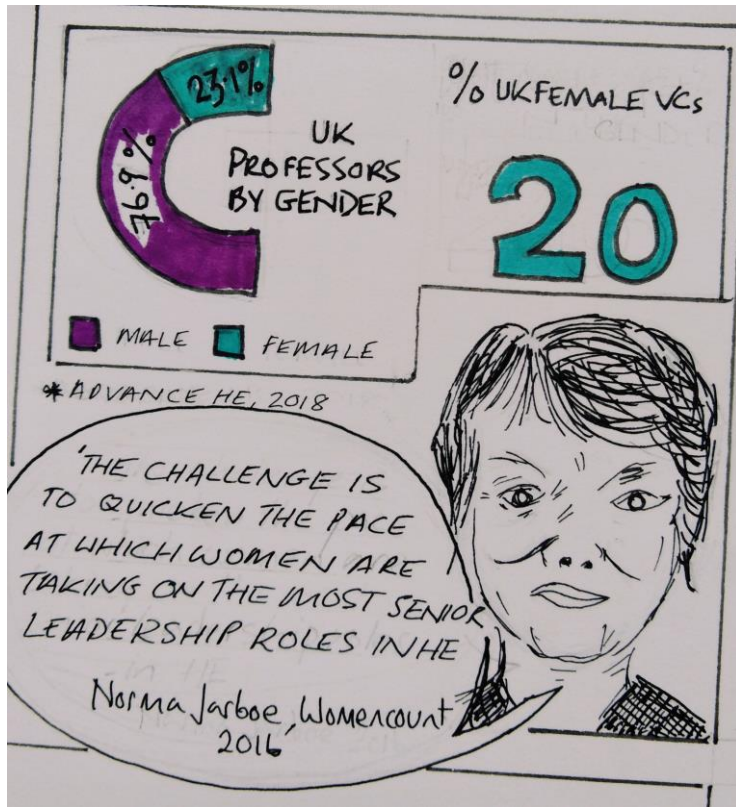 23.1%
76.9%
UK
PROFESSORS
BY GENDER
% UK FEMALE VCs
20
MALE FEMALE
* ADVANCE HE, 2018
'THE CHALLENGE IS
TO QUICKEN THE PACE
AT WHICH WOMEN ARE
TAKING ON THE MOST SENIOR
LEADERSHIP ROLES IN HE
Norma Jarboe, Womencount
2016